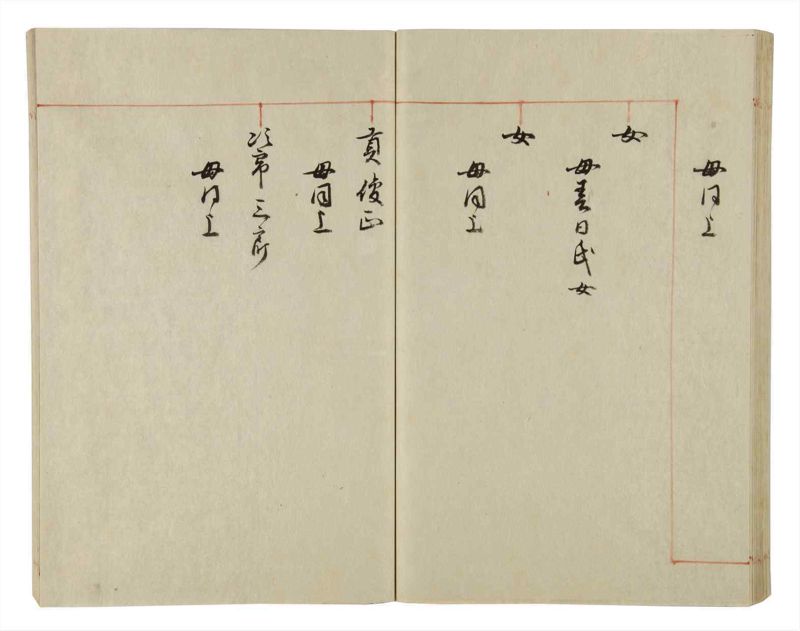 母同上
女
母春日氏女
女
母同上
貞俊正
母同上
三郎
母同上